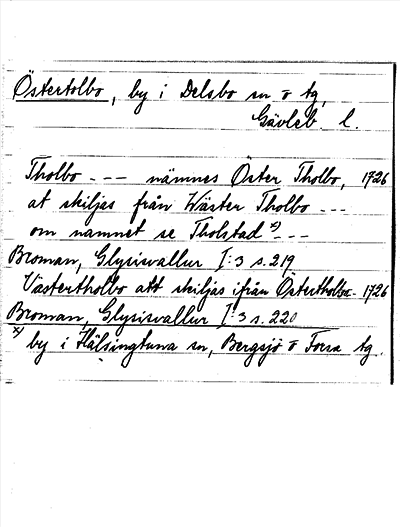 Östertolbo, by i Delsbo sn o tg,
Gävleb. l.
Tholbo --- nämnes Öster Tholbo, 1726
at skiljas från Wäster Tholbo ---
om namnet se Tholstad x) ---
Broman, Glysisvallur I:3 s. 219
Västertholbo att skiljas ifrån Östertholbo - 1726
Broman, Glysisvallur I:3 s. 220
x) by i Hälsingtuna sn, Bergsjö o Forsa tg.